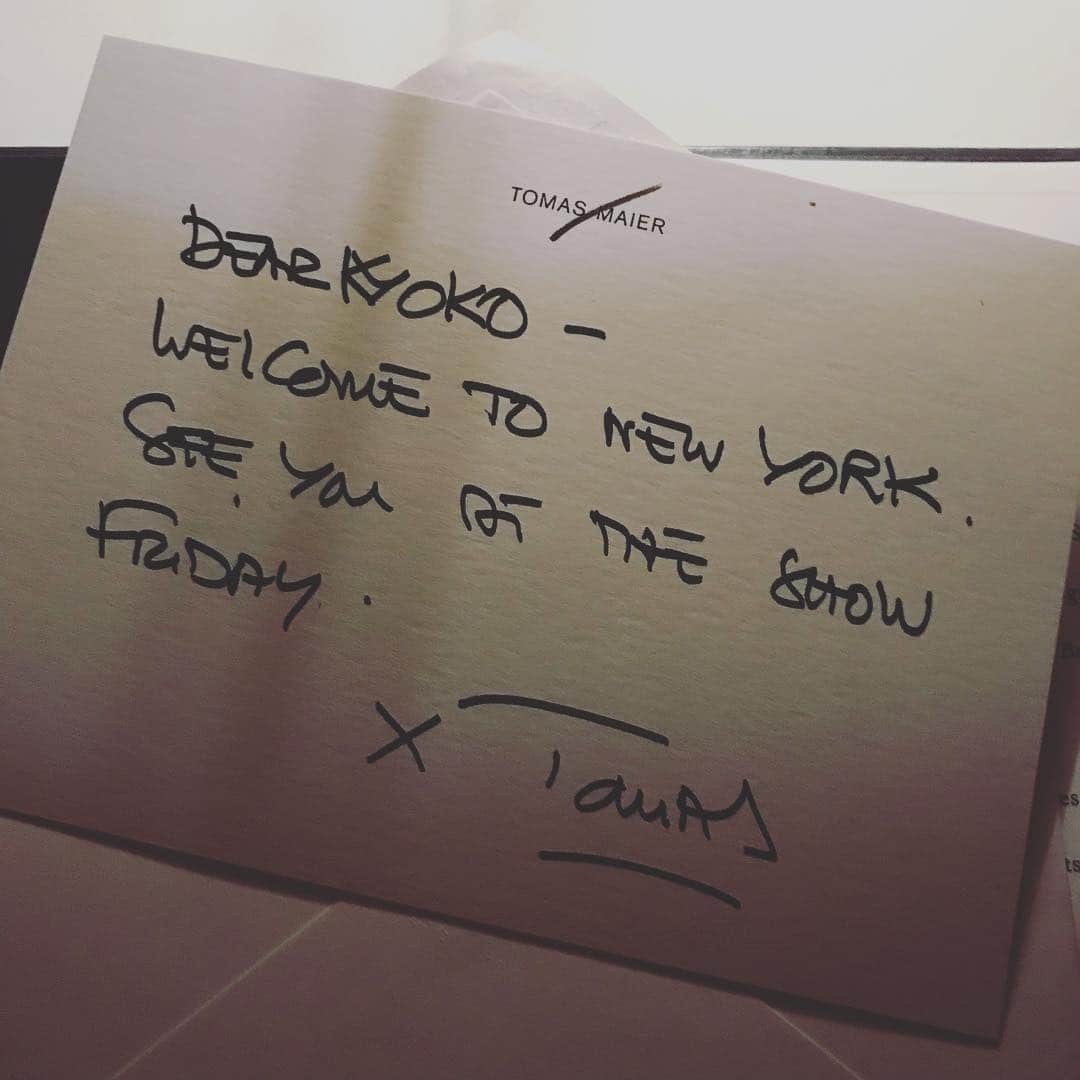 TOMAS MAIER
DEAR KYOKO –
WELCOME TO NEW YORK.
SEE YOU AT THE SHOW
FRIDAY.
X TOMAS